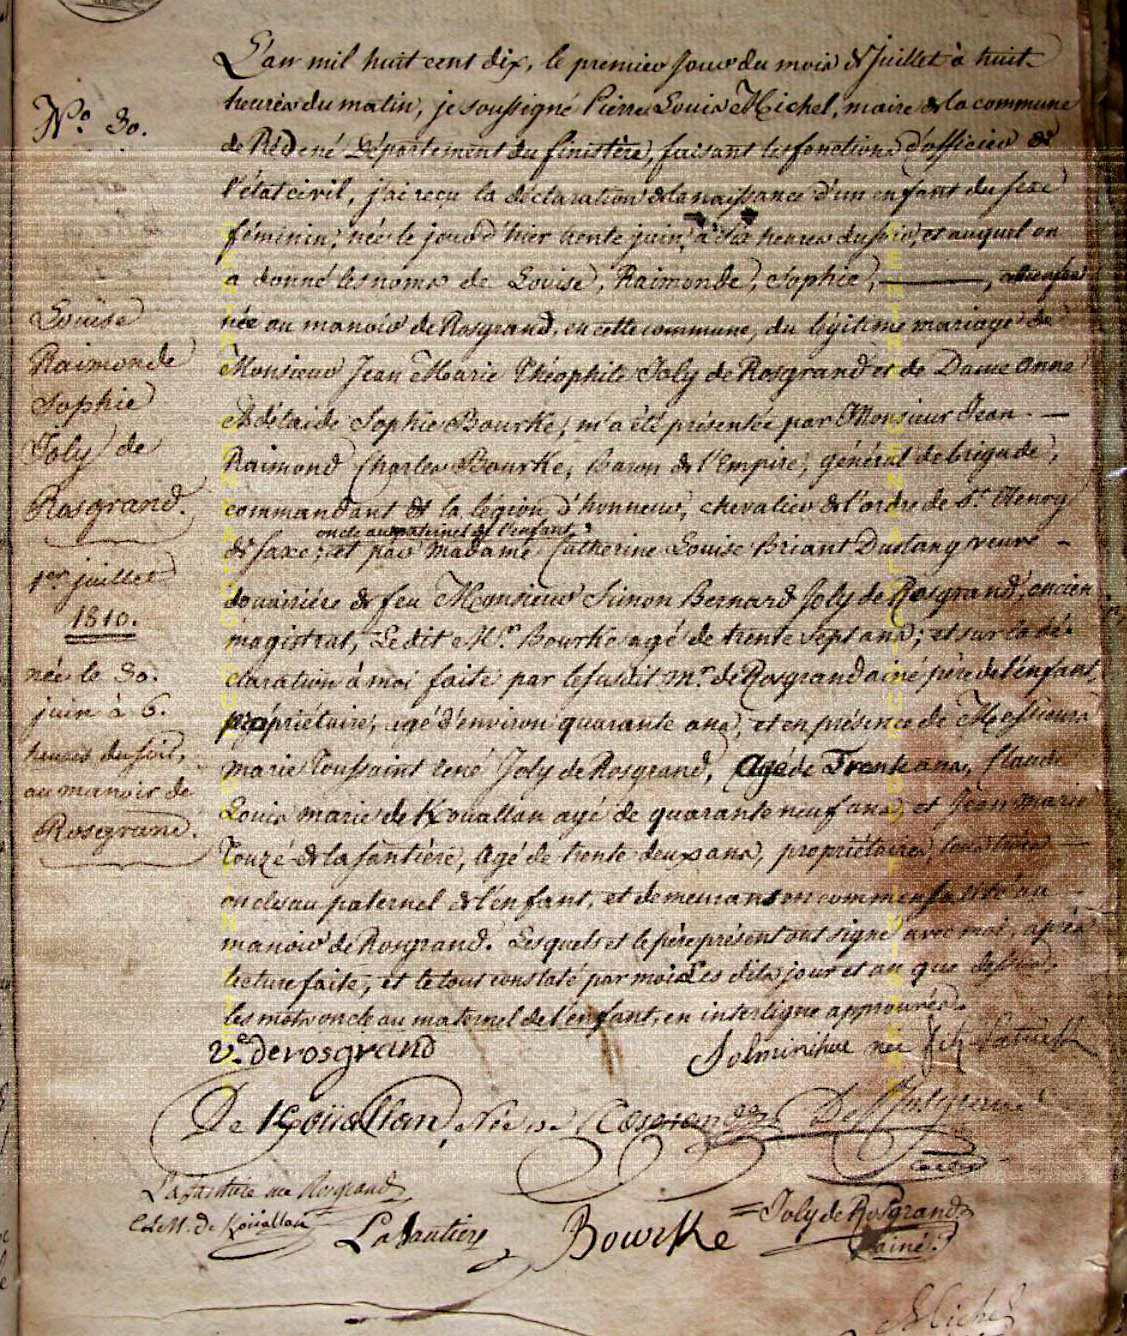 L'an mil huit cent dix, le premier jour du mois de Juillet à huit
heures du matin, je soussigné Pierre Louis Michel, maire de la commune
N.o 30.
de Rédené Département du finistère, faisant les fonctions d'officier de
l'état civil, j'ai reçu la déclaration de la naissance d'un enfant du sexe
féminin, née le jour d'hier trente juin, à six heures du soir, et auquel on
a donné les noms de Louise, Raimonde, Sophie,
née au manoir de Rosgrand, en cette commune, du légitime mariage de
Monsieur Jean Marie Théophile Joly de Rosgrand et de Dame Anne
Adélaide Sophie Bourke, m'a été présentée par Monsieur Jean
Raimond Charles Bourke, Baron de l'Empire, général de brigade,
commandant de la légion d'honneur, chevalier de l'ordre de St. Henry
oncle au maternel de l'enfant,
de saxe; et par Madame Catherine Louise Briant Duslang veuve
douairière de feu Monsieur Simon Bernard Joly de Rosgrand, ancien
magistrat, Le dit Mr. Bourke agé de trente sept ans; et sur la dé-
claration à moi faite par le susdit mr. de Rosgrand ainé père de l'enfant,
propriétaire, agé d'environ quarante ans, et en présence de Messieurs
marie Toussaint rené Joly de Rosgrand, Agé de Trente ans, Claude
Louis marie de Kouallan agé de quarante neuf ans, et Jean marie
Touzé de la santière, Agé de trente deux ans, propriétaires, tous trois
oncles au paternel de l'enfant, et demeurans en commensalité au
manoir de Rosgrand. Lesquels et le père présent ont signé avec moi, après
lecture faite, et le tout constaté par moi Les dits jour et an que dessus.
les mots oncle au maternel de l'enfant, en interligne approuvés.
Louise
Raimonde
Sophie
Joly de
Rosgrand.
1er. juillet
1810.
née le 30.
juin à 6.
heures du soir,
au manoir de
Rosgrand.
ve. de rosgrand
Solminihac née
De Koüallan, Née de Rosgrand
Lasantière née Rosgrand
C.L.M. de Koüallan
Lasantière
Bourke
Joly de Rosgrand
ainé.
Michel